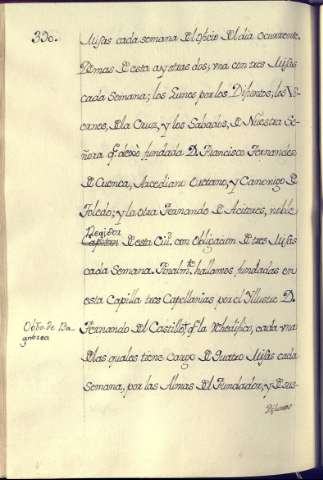 330.
Misas cada semana del oficio del dia ocurrente.
Demas de esta ay otras dos; vna con tres Misas
cada Semana; los Lunes por los Difuntos; los Vi-
ernes, de la Cruz, y los Sabados, de Nuestra Se-
ñora qe dexò fundada Dn. Francisco Fernandes
de Cuenca, Arcediano, y Canonigo de
Toledo; y la otra Fernando de Acitores, noble
Regidor
Capitan de esta Ciud. con Obligacion de tres Misas
cada Semana. Finalmte. hallamos fundadas en
esta Capilla tres Capellanias por el Illustre Dn.
Obpo. de Ba-
gnorea
Fernando del Castillo qe la Reedifico, cada vna
de las quales tiene cargo de Quatro Misas cada
Semana, por las Almas del Fundador, y de sus
Difuntos